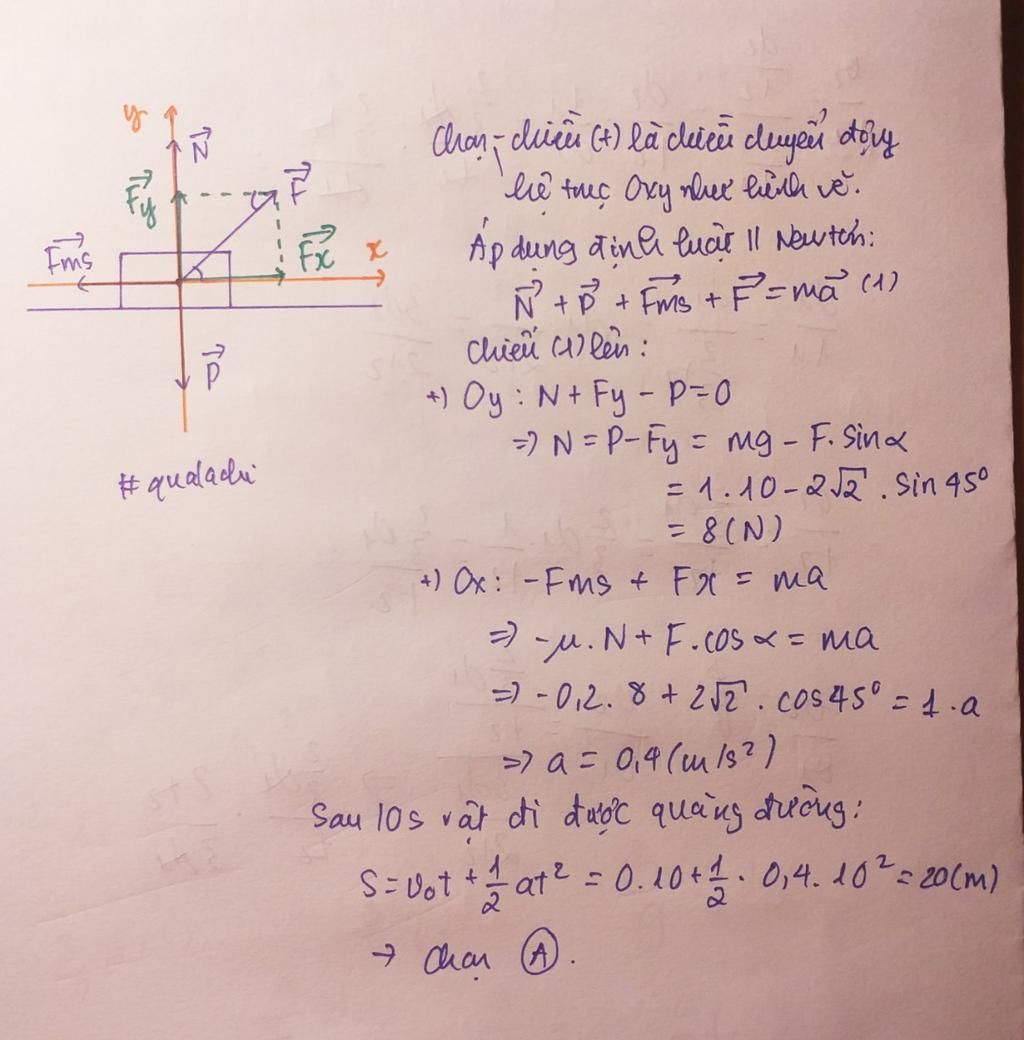 y
N
Fy
F
Fms
Fx
x
P
#qualadii
Chọn - chiều (+) là chiều chuyển động
hệ trục Oxy như hình vẽ.
Áp dụng định luật II Newton:
N + P + Fms + F = ma (1)
Chiếu (1) lên:
+) Oy: N + Fy - P = 0
=> N = P - Fy = mg - F. sinα
= 1.10 - 2√2 . sin 45°
= 8 (N)
+) Ox: -Fms + Fx = ma
=> -μ. N + F. cos α = ma
=> -0,2. 8 + 2√2 . cos45° = 1.a
=> a = 0,4 (m/s²)
Sau 10s vật đi được quãng đường:
S = v₀t + 1/2 at² = 0.10 + 1/2 . 0,4. 10² = 20(m)
→ chọn Ⓐ.